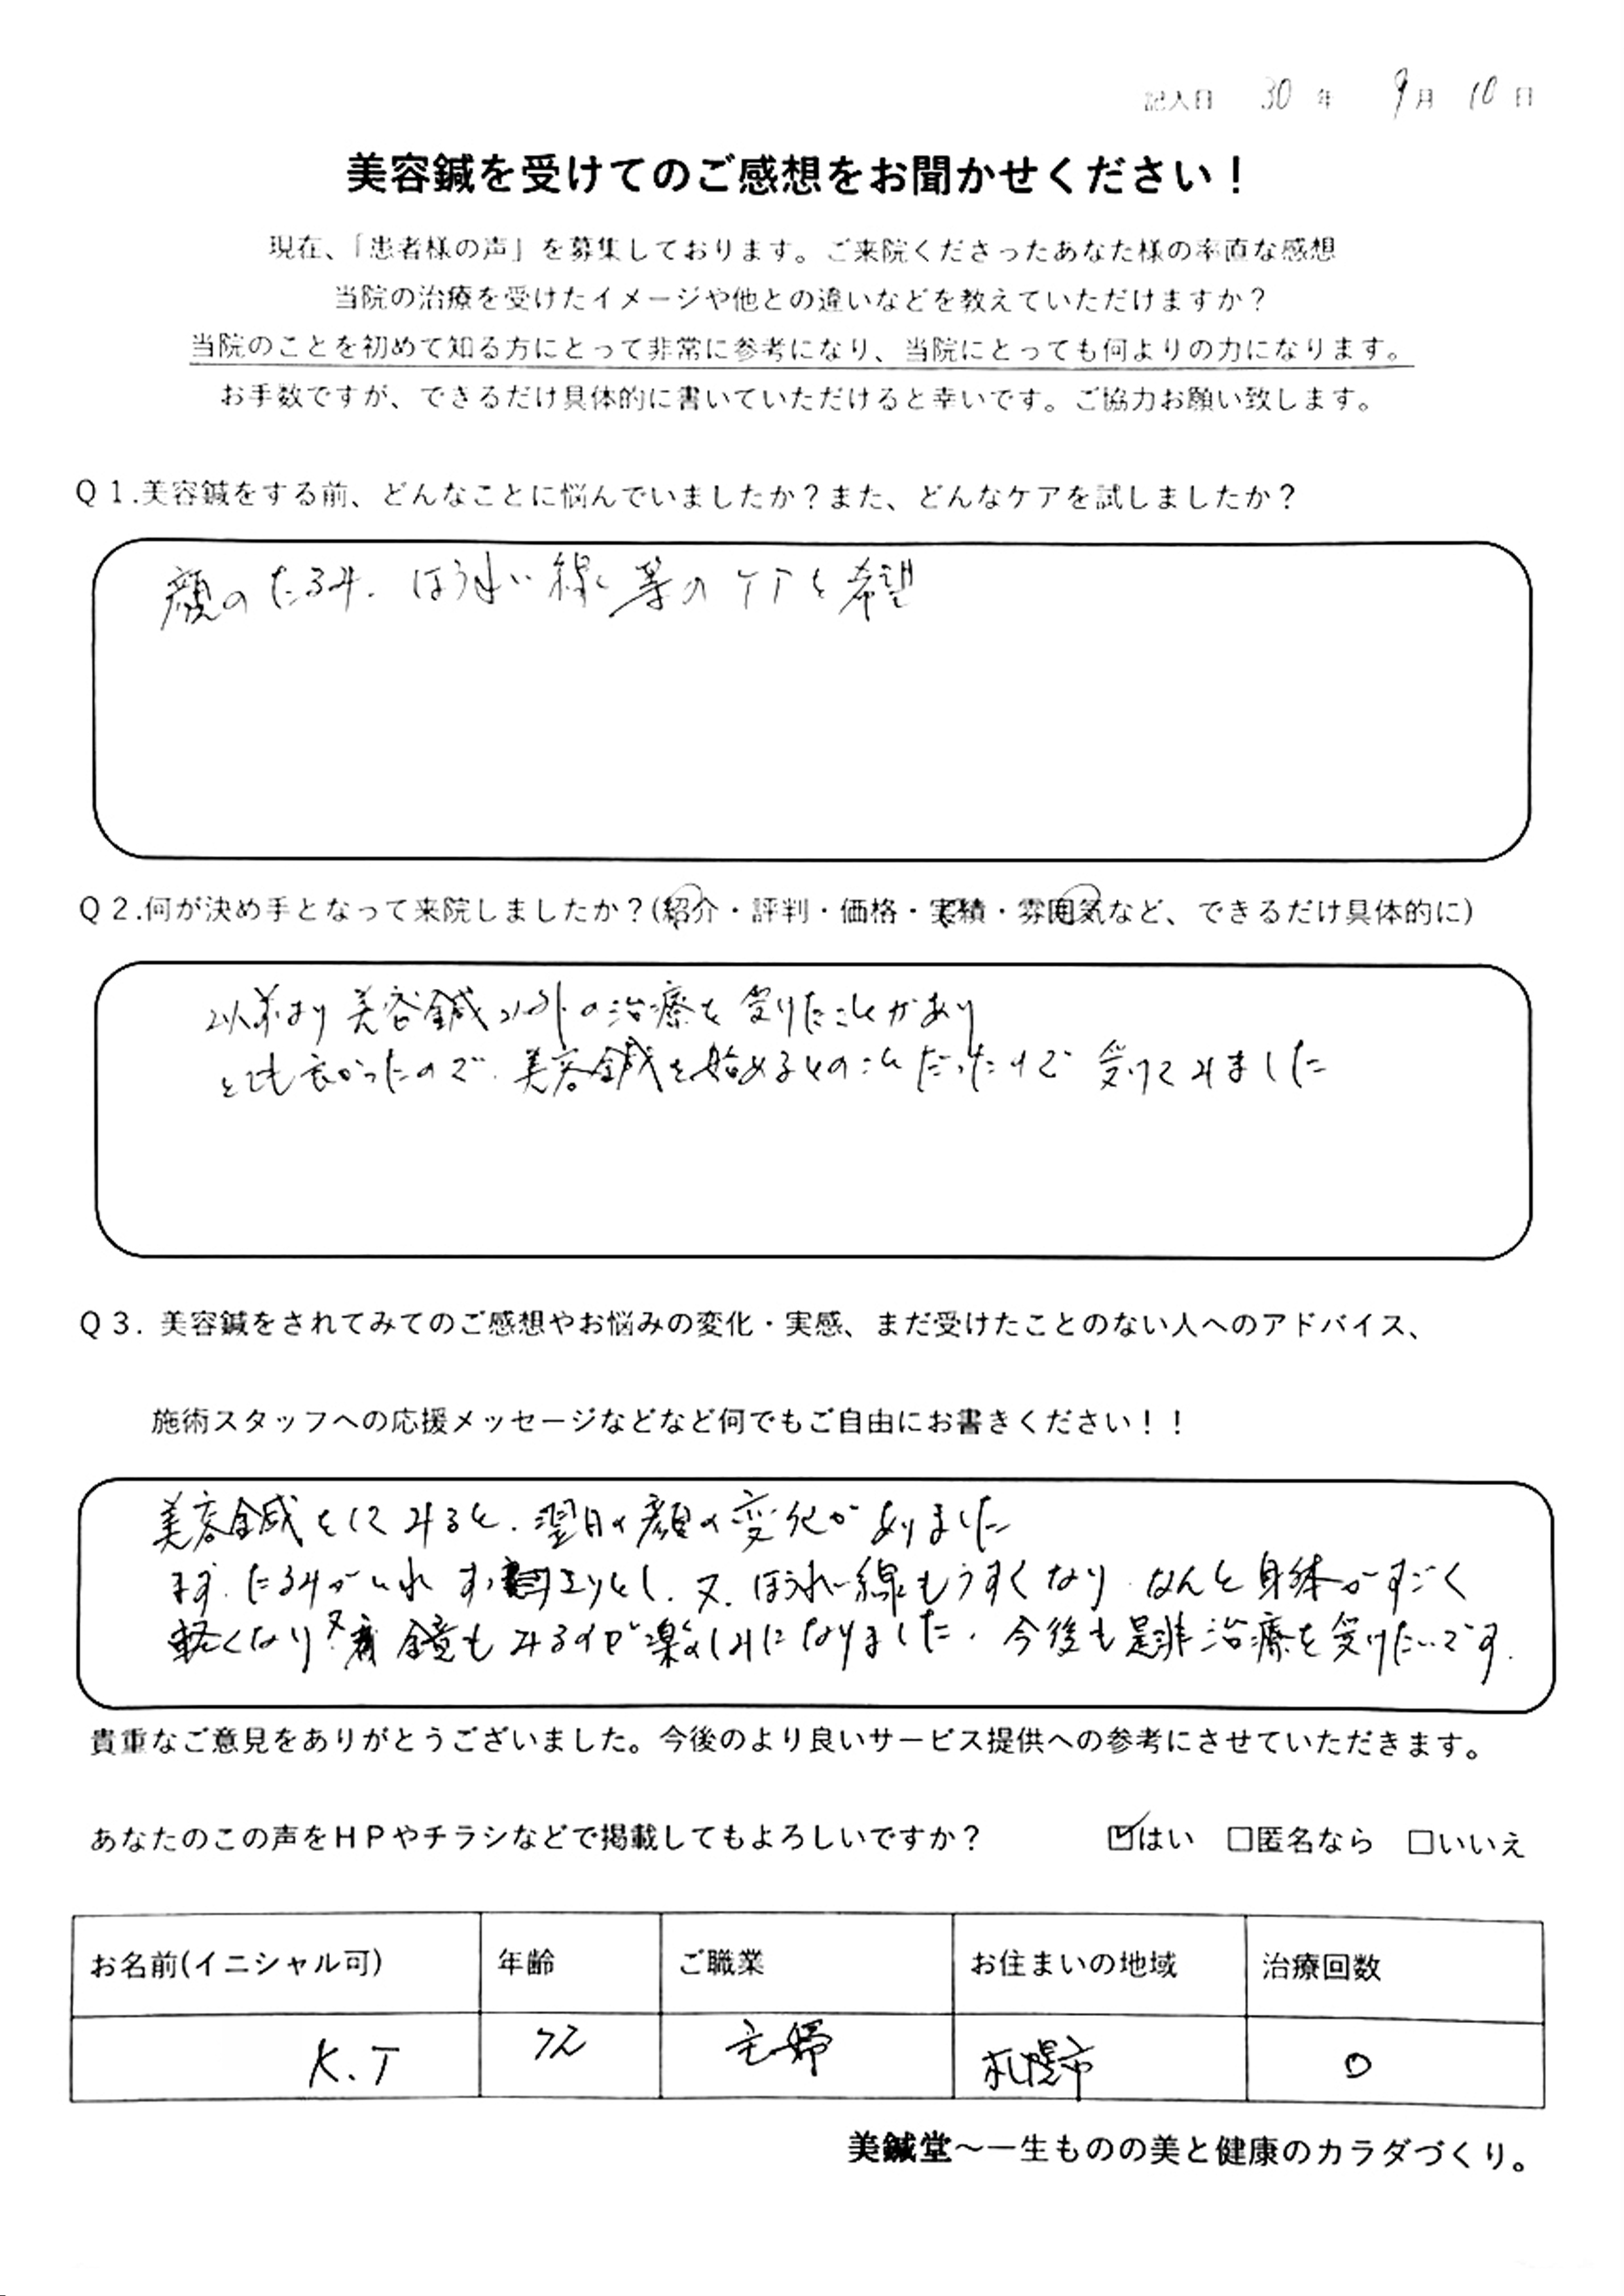 記入日 30年 9月 10日
美容鍼を受けてのご感想をお聞かせください！
現在、「患者様の声」を募集しております。ご来院くださったあなた様の率直な感想
当院の治療を受けたイメージや他との違いなどを教えていただけますか？
当院のことを初めて知る方にとって非常に参考になり、当院にとっても何よりの力になります。
お手数ですが、できるだけ具体的に書いていただけると幸いです。ご協力お願い致します。
Q１.美容鍼をする前、どんなことに悩んでいましたか？また、どんなケアを試しましたか？
顔のたるみ、ほうれい線等のケアを希望
Q２.何が決め手となって来院しましたか？(紹介・評判・価格・実績・雰囲気など、できるだけ具体的に)
以前より美容鍼以外の治療を受けたことがあり
とても良かったので、美容鍼を始めるとのことだったので受けてみました
Q３. 美容鍼をされてみてのご感想やお悩みの変化・実感、まだ受けたことのない人へのアドバイス、
施術スタッフへの応援メッセージなどなど何でもご自由にお書きください！！
美容鍼をしてみると、翌日の顔の変化がありました
まず、たるみがとれ すっきりとし、又、ほうれい線もうすくなり なんと身体がすごく
軽くなり 又 鏡もみるのが楽しみになりました。今後も是非治療を受けたいです。
貴重なご意見をありがとうございました。今後のより良いサービス提供への参考にさせていただきます。
あなたのこの声をＨＰやチラシなどで掲載してもよろしいですか？ ☑はい □匿名なら □いいえ
お名前(イニシャル可) 年齢 ご職業 お住まいの地域 治療回数
K.T 主婦 札幌市 0
美鍼堂～一生ものの美と健康のカラダづくり。